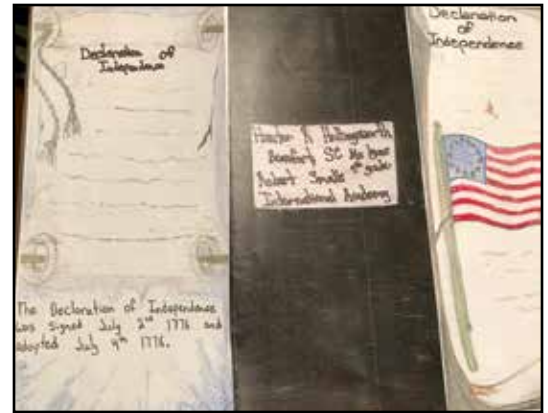 Declaration of
Independence
The Declaration of Independence
was signed July 2nd 1776 and
adopted July 4th 1776.
Hunter R Hollingsworth
Beaufort SC
Robert Smalls 4th grader
International Academy
Declaration
of
Independence